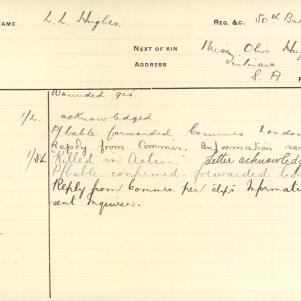 NAME L. L. Hughes. REG. &C. 50th Ba
NEXT OF KIN Miss Olis Hug
ADDRESS
S. A
Wounded gas.
1/2. acknowledged
P/Cable forwarded Commrs London
Reply from Commrs. Information
"Killed in Action" Letter acknowledg
P/Cable confirmed forwarded
Reply from Commrs. per Informati
sent Inquirer.